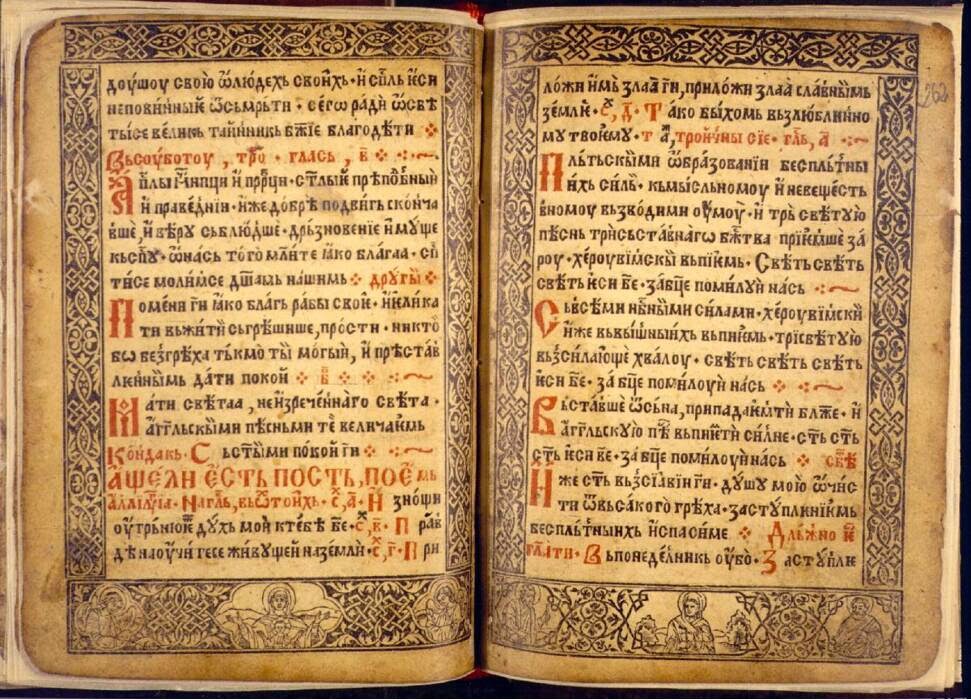 доушоу свою ѿлюдехь своихь · и сп҃ль ѥси
неповинныѥ ѿсьмрьти · сего ради ѿсвѣ
тысе великь таинникь бж҃їе благодѣти
Вьсоуботоу , тро · глась , в҃
Ап҃лы мч҃нпци и пр҃рци · ст҃лыѥ прѣпо҃бныѥ
и праведнїи · иже добрѣ подвигь сконча
вше , и вѣру сьблюдше · дрьзновенїе имуще
кьсп҃су · ѡнась того мл҃ите ꙗко благаа · сп҃
тисе молимсе дш҃амь нашимь · другы
Помени ги҃ ꙗко благь рабы свое · и ѥлика
ти вьжити сьгрѣшише , прости · никто
бо безгрѣха тькмо ты могыи , и прѣстав
лѥннымь дати покои · в҃
Мати свѣтаа , неизреченнаго свѣта ·
аг҃гльскыми пѣсньми те величаѥмь
Кондакь · Сьст҃ыми покои ги҃
Ащели ѥсть пость , поѥмь
алꙗлиꙋїа · Нагл҃ь , вьѿтоихь · с҃ , а҃ · И зноши
оутрьнюѥ духь мои ктебѣ бе҃ · с҃ , в҃ · Прав
дѣ наоучи гесе живущеи наземли · с҃ , г҃ · При
ложи имь злаа ги҃ , приложи злаа славнымь
землѥ · с҃ , д҃ · Тако быхомь вьзлюблинно
му твоѥму · т а҃ , троичны сїе · гл҃ь , а҃
Пльтьскыми ѡбразованїи беспльтны
ихь силь · кьмысльномоу и невещесть
вномоу вьзводими оумоу · и трь свѣтую
пѣснь трисьставнаго бж҃тва прїѥмше за
роу · хероувїмскы вьпїѥмь · Свѣть свѣть
свѣть ѥси бе҃ · за бц҃е помилуи нась
Сьвсѣми нб҃ными силами · херѹвїмски
иже вьвышныхь вьпїѥмь · трїсвѣтую
вьзсилающе хвалоу · свѣть свѣть свѣть
ѥси бе҃ · за бц҃е помилоуи нась
Вьставше ѿсьна , припадаѥмьти бл҃же · и
аг҃гльскую пѣ҃ вьпиѥмти сил҃не · ст҃ь ст҃ь
ст҃ь ѥси бе҃ · за бц҃е помилоуи нась · свѣ
Иже ѥсть вьзсїавїи ги҃ · душу мою ѡчис
ти ѿвьсакого грѣха · заступлѥнїѥмь
беспльтныихь и спасиме · Дльжно ѥ҃
гл҃ати · Вьпонедѣлникь оубо · Заступлѥ
262